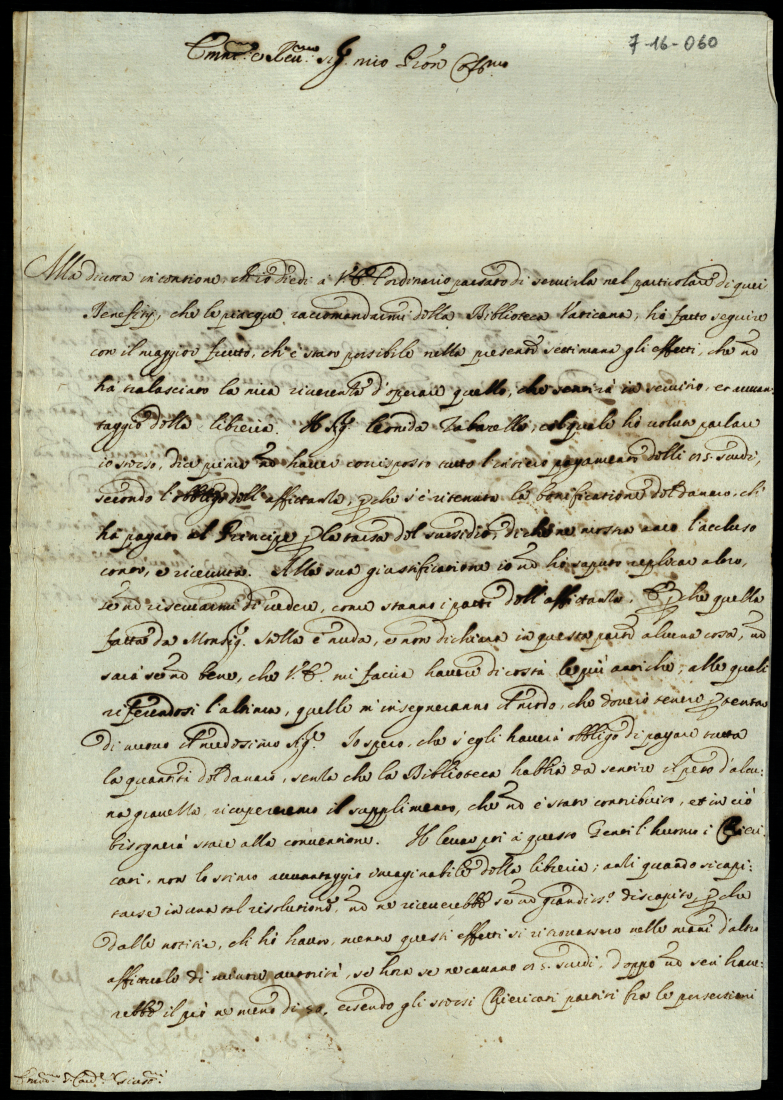 7-16-060
Em.mo e Rev.mo Sig. mio Pron Col.mo
Alla divota intentione, ch'io diedi a V.E. l'ordinario passato di servirla nel particolare di quei
Beneficij, che le piacque raccomandarmi della Biblioteca Vaticana, hò fatto seguire
con il maggior frutto, ch'è stato possibile nella presente settimana gli effetti, che nõ
hà tralasciato la mia riverenza d'operare quello, che sentirà in servitio, et avvan-
taggio della libreria. Il Sig. Leonida Zabarella, col quale hò voluto parlare
io stesso, dice prima nõ haver corrisposto tutto l'intiero pagamento delli 115 scudi,
secondo l'obbligo dell'affittanza, p che s'è ritenuta la bonificatione del danaro, ch'
hà pagato al Principe p la tassa del sussidio, di che ne mostra anco l'accluso
conto, e ricevuta. Alla sua giustificatione io nõ hò saputo replicar altro,
se nõ riservarmi di vedere, come stanno i patti dell'affittanza. E p che quella
fatta da Monsig. Stella è nuda, e non dichiara in questa parte alcuna cosa, nõ
sarà se nõ bene, che V.E. mi faccia havere di costà le più antiche; alle quali
riferendosi l'ultima, quelle m'insegneranno il modo, che dovrò tenere p tentar
di nuovo il medesimo Sig. Io spero, che s'egli haverà obbligo di pagare tutta
la quantità del danaro, senza che la Biblioteca habbia da sentire il peso d'alcu-
na gravezza, ricupereremo il supplimento, che nõ è stato contribuito, et in ciò
bisognerà stare alla conventione. Il levar poi à questo Gentil'huomo i Chieri-
cati, non lo stimo avvantaggio imaginabile della libreria; anzi quando si capi-
tasse in una tal risolutione, nõ ne riceverebbe se nõ grandiss.o discapito, p che
dalle notitie, ch'hò havuto, mentre questi effetti si ritrovassero nelle mani d'altro
affittuale di minore autorità, se hora se ne cavano 115 scudi, doppo nõ se ni have-
rebbe il più ne meno di 50, essendo gli stessi Chiericati partiti fra le persecutioni
Em.mo S.r Card.